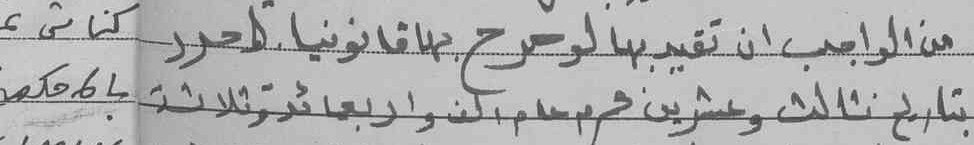 من الواجب ان تقيد بها لو صرح بها قانونيا. ط حرر
بتاريخ ثالث وعشرين محرم عام الف واربعمائة وثلاثة